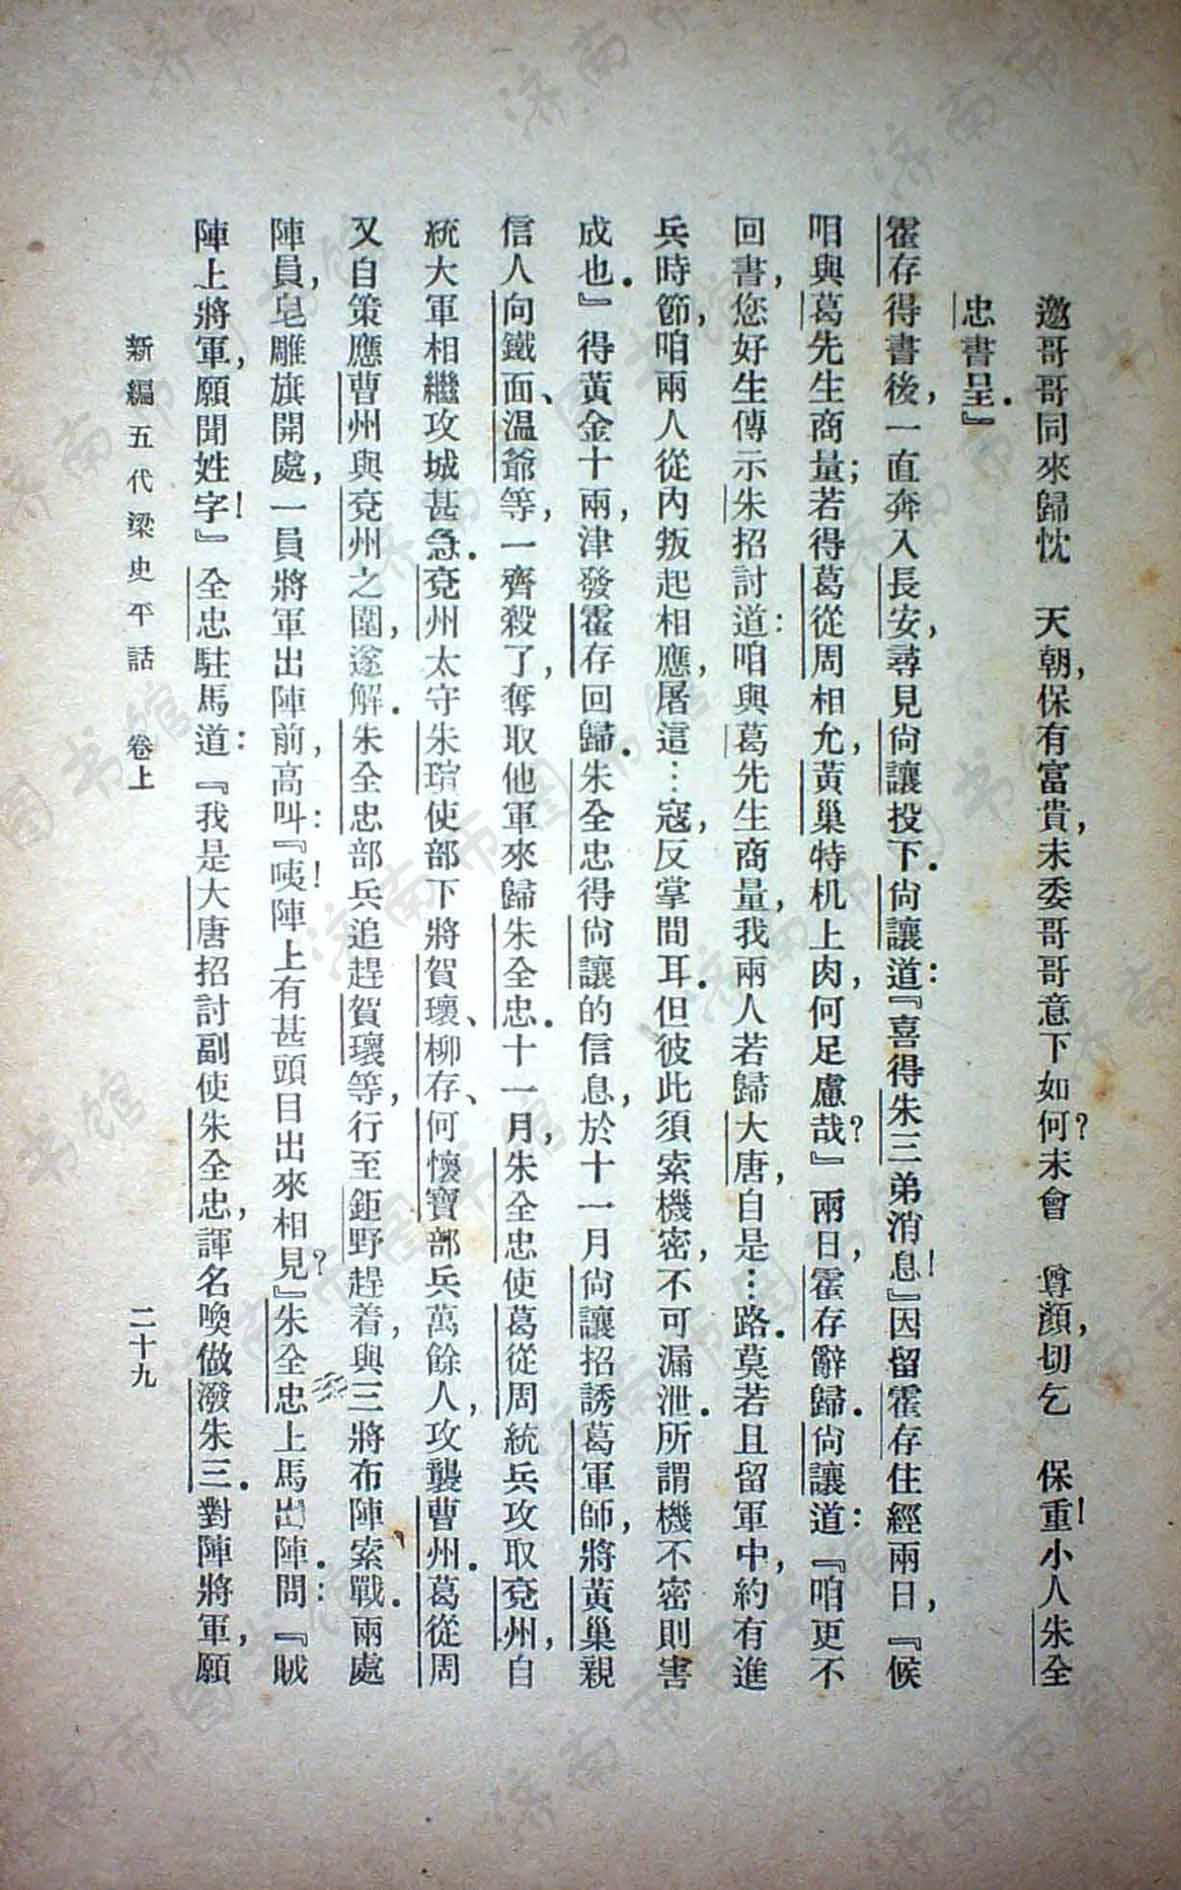 邀哥哥同來歸忱　天朝，保有富貴，未委哥哥意下如何？未會　尊顏，切乞　保重！小人朱全
忠書呈。』
霍存得書後，一直奔入長安，尋見尙讓投下。尙讓道：『喜得朱三弟消息！』因留霍存住經兩日，『候
咱與葛先生商量；若得葛從周相允，黃巢特机上肉，何足慮哉？』兩日，霍存辭歸。尙讓道：『咱更不
回書，您好生傳示朱招討道：咱與葛先生商量，我兩人若歸大唐，自是…路。莫若且留軍中，約有進
兵時節，咱兩人從內叛起相應，屠這…寇，反掌間耳。但彼此須索機密，不可漏泄。所謂機不密則害
成也。』得黃金十兩，津發霍存回歸。朱全忠得尙讓的信息，於十一月尙讓招誘葛軍師，將黃巢親
信人向鐵面、温爺等，一齊殺了，奪取他軍來歸朱全忠。十一月，朱全忠使葛從周統兵攻取兗州，自
統大軍相繼攻城甚急。兗州太守朱瑄使部下將賀瓌、柳存、何懷寶部兵萬餘人，攻襲曹州。葛從周
又自策應曹州與兗州之圍，遂解。朱全忠部兵追趕賀瓌等，行至鉅野趕着，與三將布陣索戰。兩處
陣員，皂雕旗開處，一員將軍出陣前，高叫：『咦！陣上有甚頭目出來相見？』朱全忠上馬出陣。問：『賊
陣上將軍，願聞姓字！』全忠駐馬道：『我是大唐招討副使朱全忠，諢名喚做潑朱三。對陣將軍，願
新編五代梁史平話　卷上　二十九
濟南市图书馆